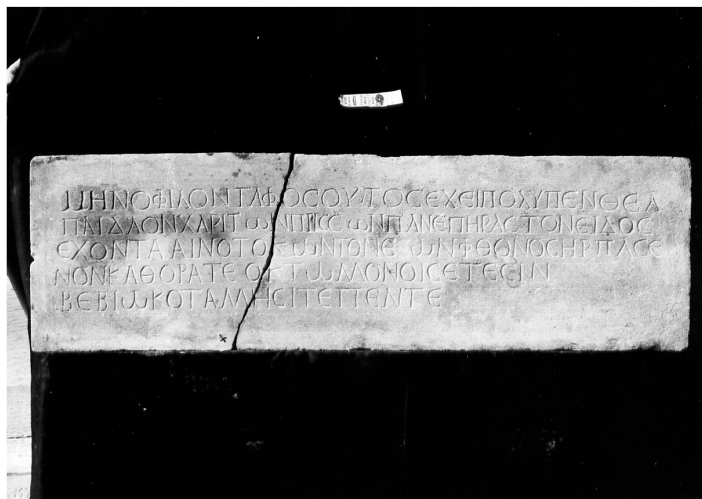 ΜΗΝΟΦΙΛΟΝΤΑΦΟCΟΥΤΟCΕΧΕΙΠΟΛΥΠΕΝΘΕΑ
ΠΑΙΔΑΟΝΧΑΡΙΤωΝΠΡΙCCωΝΠΑΝΕΠΗΡΑCΤΟΝΕΙΔΟC
ΕΧΟΝΤΑΑΙΝΟΤΟΚωΝΓΟΝΕωΝΦΘΟΝΟCΗΡΠΑCΕ
ΝΟΝΚΑΘΟΡΑΤΕΟΚΤωΜΟΝΟΙCΕΤΕCΙΝ
ΒΕΒΙωΚΟΤΑΜΗCΙΤΕΠΕΝΤΕ